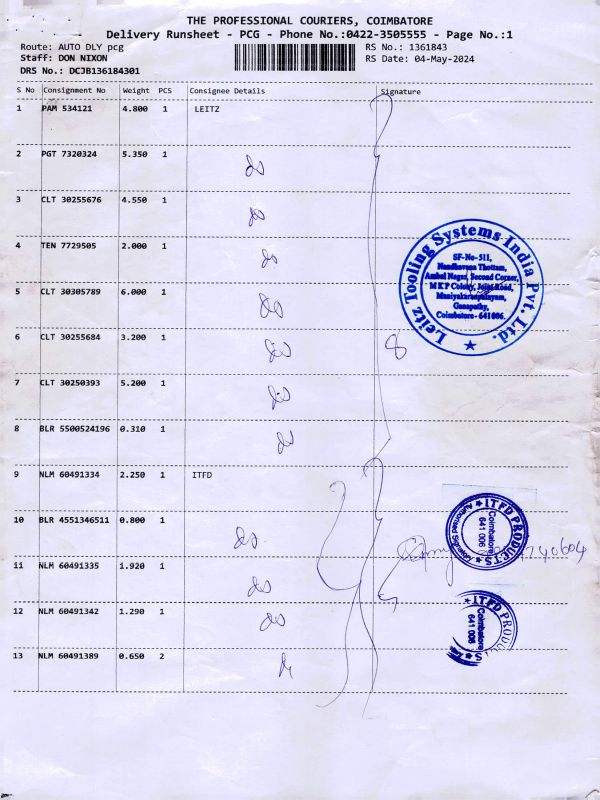 THE PROFESSIONAL COURIERS, COIMBATORE
Delivery Runsheet - PCG - Phone No.:0422-3505555 - Page No.:1
Route: AUTO DLY pcg
RS No.: 1361843
Staff: DON NIXON
RS Date: 04-May-2024
DRS No.: DCJB136184301
S No Consignment No Weight PCS Consignee Details Signature
1 PAM 534121 4.800 1 LEITZ
2 PGT 7320324 5.350 1 do
3 CLT 30255676 4.550 1 do
4 TEN 7729505 2.000 1 do
5 CLT 30305789 6.000 1 do
6 CLT 30255684 3.200 1 do 8
7 CLT 30250393 5.200 1 do
8 BLR 5500524196 0.310 1 do
9 NLM 60491334 2.250 1 ITFD
10 BLR 4551346511 0.800 1 do
11 NLM 60491335 1.920 1 do
12 NLM 60491342 1.290 1 do
13 NLM 60491389 0.650 2
Leitz Tooling Systems India Pvt. Ltd.
SF-No-511,
Nandhavana Thottam,
Ambal Nagar, Second Corner,
M K P Colony, Joint Road,
Maniyakarampalayam,
Ganapathy,
Coimbatore - 641 006.
ITFD PRODUCTS
Coimbatore
641 006
Authorised Signatory
740604
ITFD PRODU
Coimbatore
641 006
S